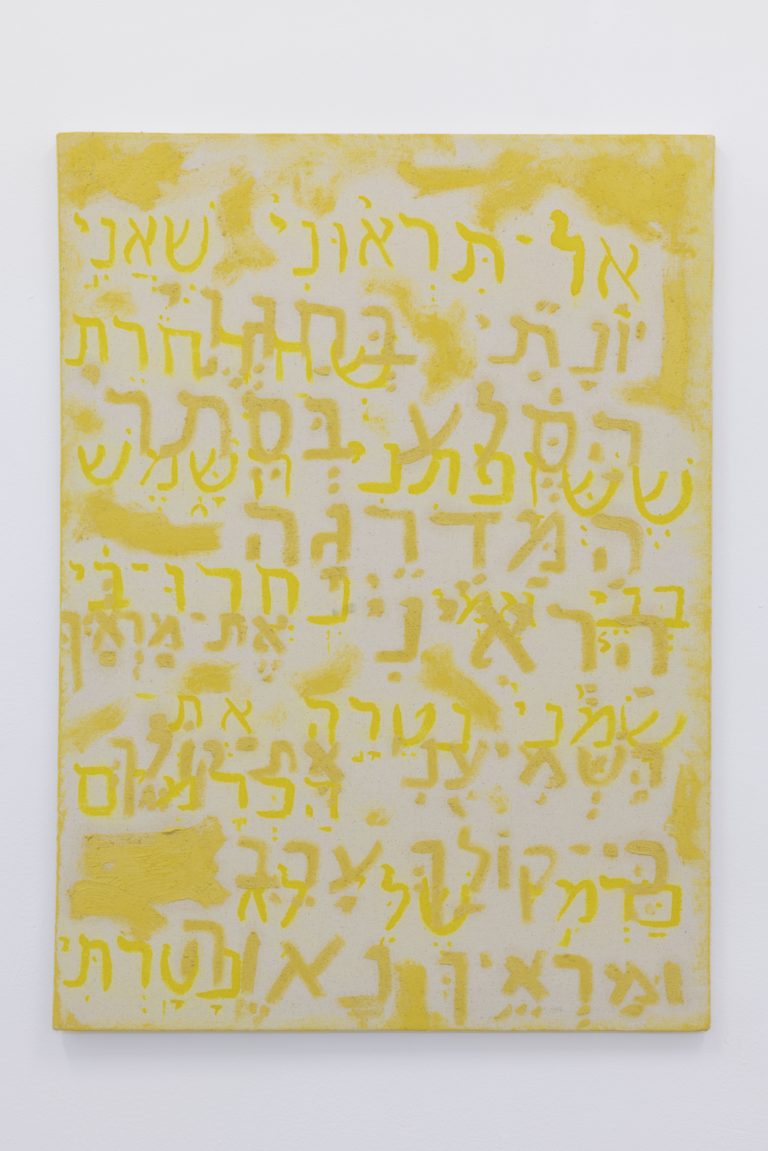 אַל־תִּרְאוּנִי שֶׁאֲנִי
יוֹנָתִי בְּחַגְוֵי
שְׁחַרְחֹרֶת
הַסֶּלַע בְּסֵתֶר
שֶׁשֱּׁזָפַתְנִי הַשָּׁמֶשׁ
הַמַּדְרֵגָה
בְּנֵי אִמִּי נִחֲרוּ־בִי
הַרְאִינִי אֶת־מַרְאַיִךְ
שָׂמֻנִי נֹטֵרָה אֶת־
הַשְׁמִיעִנִי אֶת־קוֹלֵךְ
הַכְּרָמִים
כִּי־קוֹלֵךְ עָרֵב
כַּרְמִי שֶׁלִּי לֹא
וּמַרְאֵיךְ נָאוֶה
נָטָרְתִּי